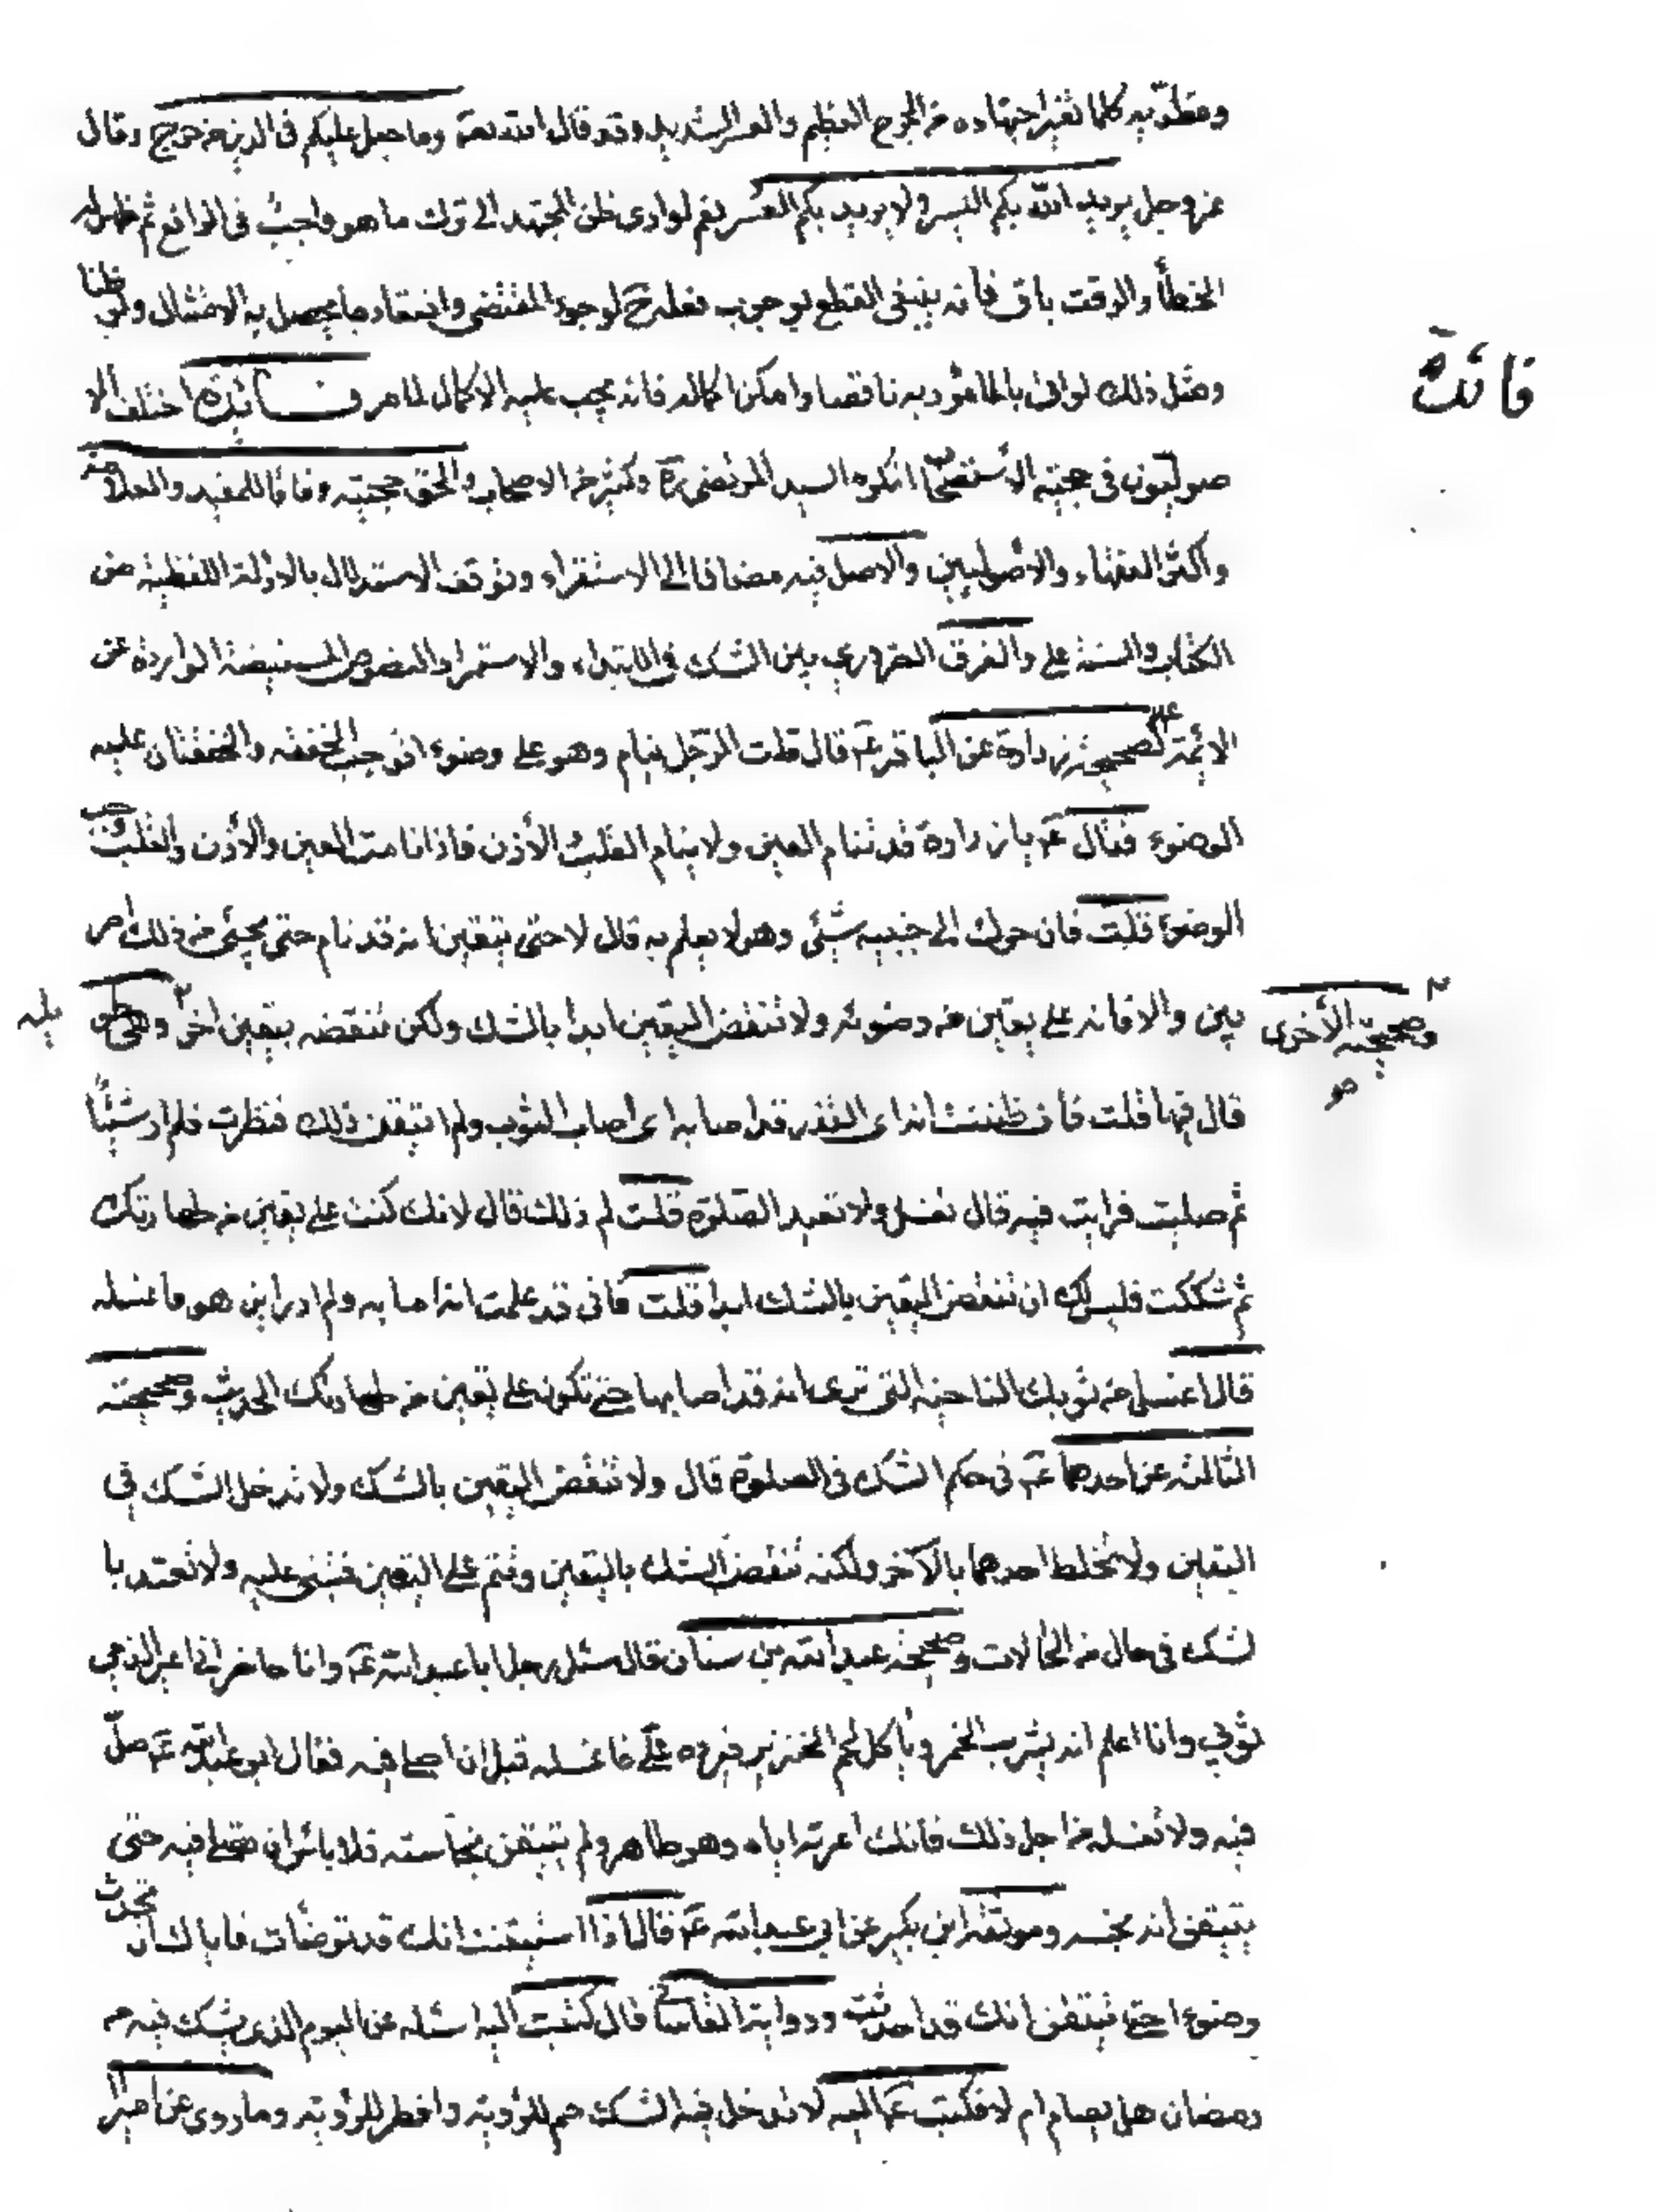 ومقلديه كلما تغير اجتهاده من الحرج العظيم والعسر الشديد وقد قال الله تعه وما جعل عليكم في الدين من حرج وقال
عز وجل يريد الله بكم اليسر ولا يريد بكم العسر نعم لو ادى ظن المجتهد الى ترك ما هو واجب في الواقع ثم ظهر له
الخطأ والوقت باق فانه ينبغي القطع بوجوب فعله ح لوجود المقتضى وانتفاء ما يحصل به الامتثال ولو ظنا
ومثل ذلك لو اتى بالمامور به ناقصا وامكن اكماله فانه يجب عليه الاكمال لما مر فائدة اختلف الا
صوليون في حجية الاستصحاب انكره السيد المرتضى ره وكثير من الاصحاب والحق حجيته وفاقا للمفيد والعلامة
واكثر الفقهاء والأصوليين والاصل فيه مضافا الى الاستقراء وتوقف الاستدلال بالادلة اللفظية من
الكتاب والسنة على والفرق الضروري بين الشك في الابتداء والاستمرار النصوص المستفيضة الواردة عن
الائمة ع كصحيحة زرارة عن الباقر عم قال قلت الرجل ينام وهو على وضوء اتوجب الخفقة والخفقتان عليه
الوضوء فقال عم يا زرارة قد تنام العين ولا ينام القلب الأذن فاذا نامت العين والأذن والقلب وجب
الوضوء قلت فان حرك الى جنبيه شئ وهو لا يعلم به قال لا حتى يتيقن انه قد نام حتى يجئ من ذلك امر
بين والا فانه على يقين من وضوئه ولا تنقض اليقين ابدا بالشك ولكن تنقضه بيقين اخر
وصحيحته الأخرى
قال فيها قلت فان ظننت انه اى القذر قد اصابه اى اصاب الثوب ولم اتيقن ذلك فنظرت فلم ار شيئا
ثم صليت فرايت فيه قال تغسل ولا تعيد الصلوة قلت لم ذلك قال لانك كنت على يقين من طهارتك
ثم شككت فليس لك ان تنقض اليقين بالشك ابدا قلت فاني قد علمت انه اصابه ولم ادر اين هو فاغسله
قال اغسل من ثوبك الناحية التي ترى انه قد اصابها حتى تكون على يقين من طهارتك الحديث وصحيحته
الثالثة عن احدهما عم في حكم الشك في الصلوة قال ولا تنقض اليقين بالشك ولا تدخل الشك في
اليقين ولا تخلط احدهما بالآخر ولكنه تنقض الشك باليقين وتتم على اليقين فتبني عليه ولا تعتد با
لشك في حال من الحالات وصحيحة عبد الله بن سنان قال سئل رجل ابا عبد الله عم وانا حاضر اني اعير الذمي
ثوبي وانا اعلم انه يشرب الخمر ويأكل لحم الخنزير فيرده علي فاغسله قبل ان اصلي فيه فقال ابو عبد الله عم صل
فيه ولا تغسله من اجل ذلك فانك اعرته اياه وهو طاهر ولم تتيقن نجاسته فلا باس ان تصلي فيه حتى
يتيقن انه نجسه وموثقة ابن بكير عن ابي عبد الله عم قال اذا استيقنت انك قد توضأت فاياك ان تحدث
وضوءا حتى تتيقن انك قد احدثت ورواية القاساني قال كتبت اليه اسئله عن اليوم الذي يشك فيه من
رمضان هل يصام ام لا فكتب عم اليه لا تدخل فيه الشك صم للرؤية وافطر للرؤية وما روي عن امير
فائدة